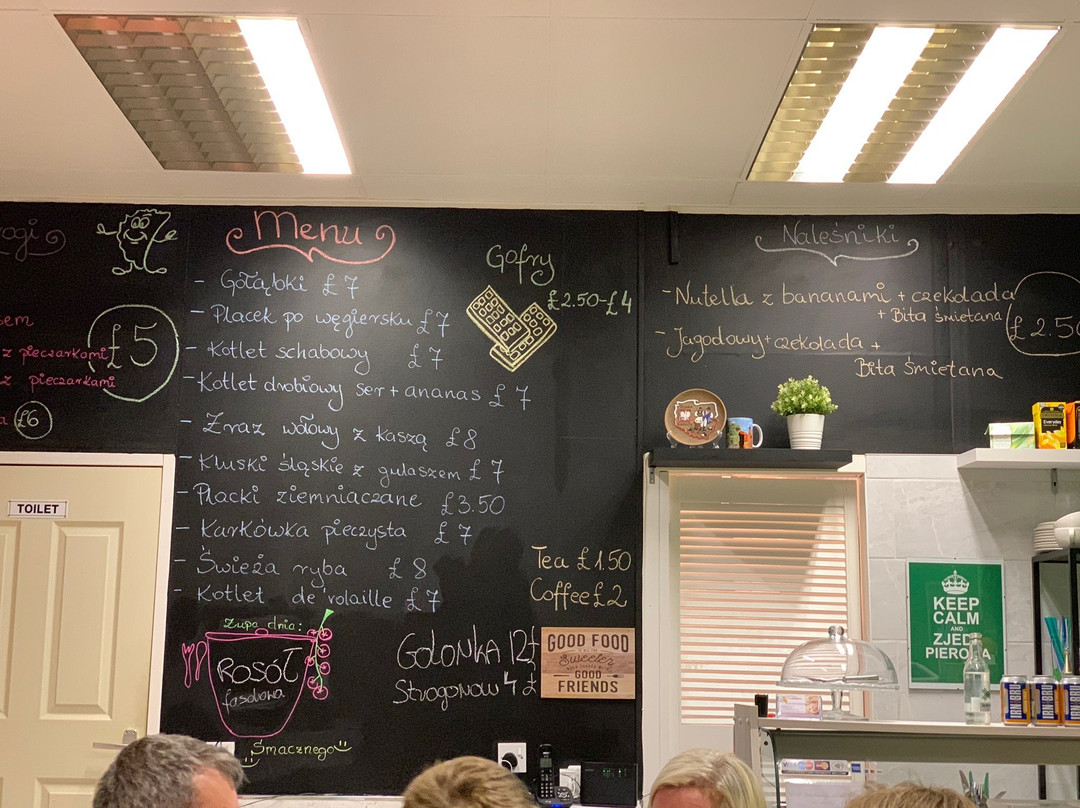 z pieczarkami
z pieczarkami
£5
£6
TOILET
Menu
- Gołąbki £7
- Placek po węgiersku £7
- Kotlet schabowy £7
- Kotlet drobiowy ser + ananas £7
- Zraz wołowy z kaszą £8
- Kluski śląskie z gulaszem £7
- Placki ziemniaczane £3.50
- Karkówka pieczysta £7
- Świeża ryba £8
- Kotlet de volaille £7
Zupa dnia:
ROSÓŁ
fasolowa
Smacznego
Gofry
£2.50-£4
Tea £1.50
Coffee £2
GOLONKA 12£
Strogonow 4£
GOOD FOOD
Sweeter
GOOD
FRIENDS
Naleśniki
- Nutella z bananami + czekolada
+ Bita śmietana
- Jagodowy + czekolada +
Bita śmietana
£2.50
Everyday
KEEP
CALM
AND
ZJEDZ
PIEROGA
IRN-BRU
IRN-BRU
VISA